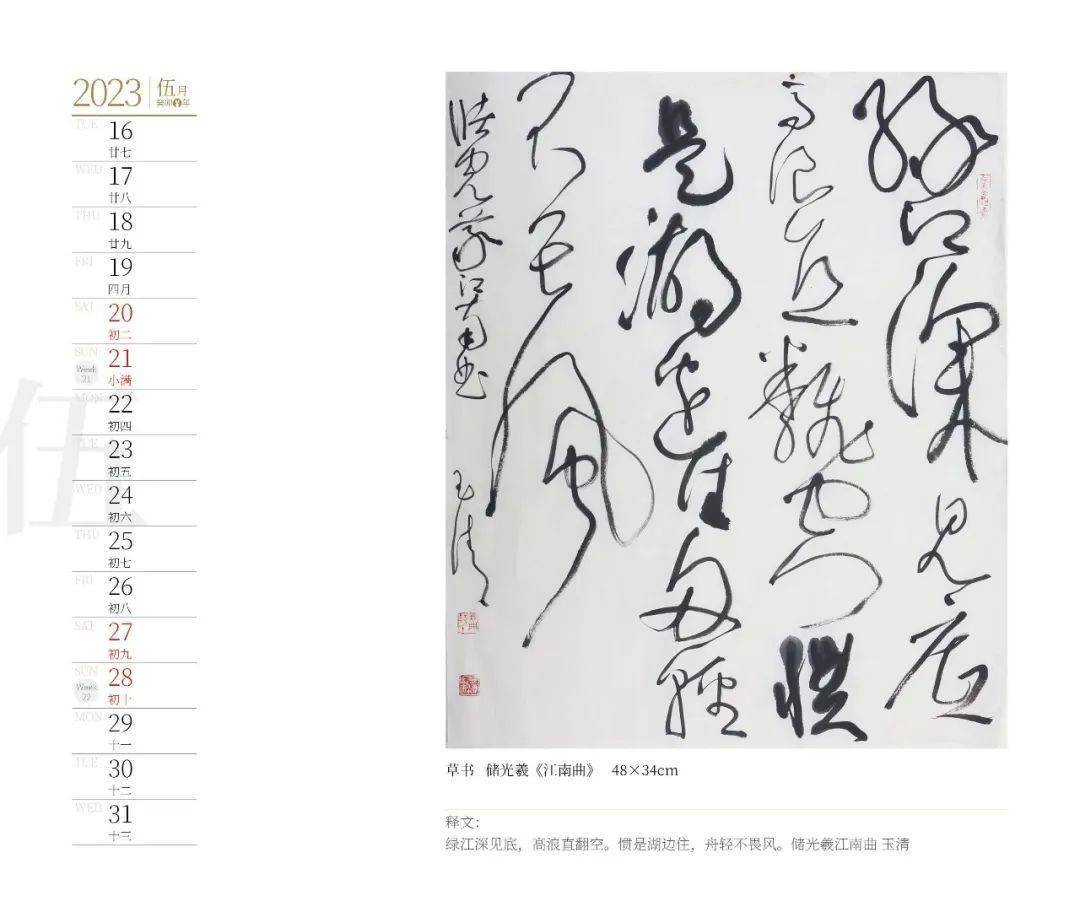 2023 伍月
癸卯年
伍
TUE 16
廿七
WED 17
廿八
THU 18
廿九
FRI 19
四月
SAT 20
初二
SUN 21
Week 21 小满
MON 22
初四
TUE 23
初五
WED 24
初六
THU 25
初七
FRI 26
初八
SAT 27
初九
SUN 28
Week 22 初十
MON 29
十一
TUE 30
十二
WED 31
十三
绿江深见底
高浪直翻空惯
是湖边住舟轻
不畏风
储光羲江南曲 玉清
草书 储光羲《江南曲》 48×34cm
释文：
绿江深见底，高浪直翻空。惯是湖边住，舟轻不畏风。储光羲江南曲 玉清